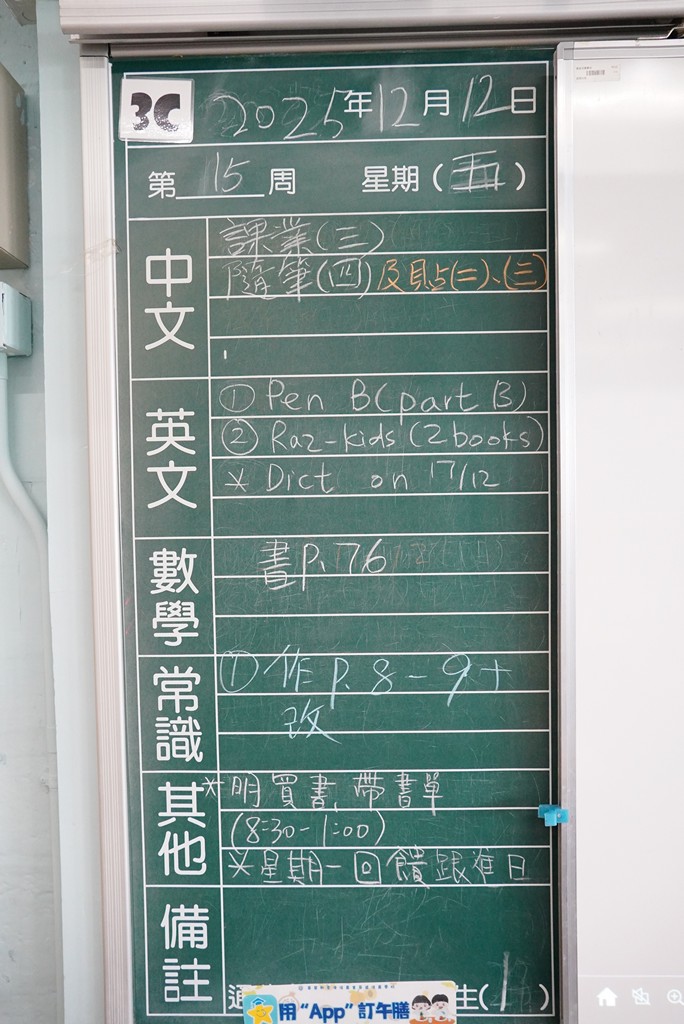 3C 2025年12月12日
第15周 星期(五)
中文
課業(三)
隨筆(四)及貼(二)、(三)
英文
① Pen B(part B)
② Raz-kids (2 books)
* Dict on 17/12
數學
書p.76
常識
① 作p.8-9+
改
其他
*明買書,帶書單
(8:30-1:00)
*星期一回饋跟進日
備註
生(1)
用“App”訂午膳